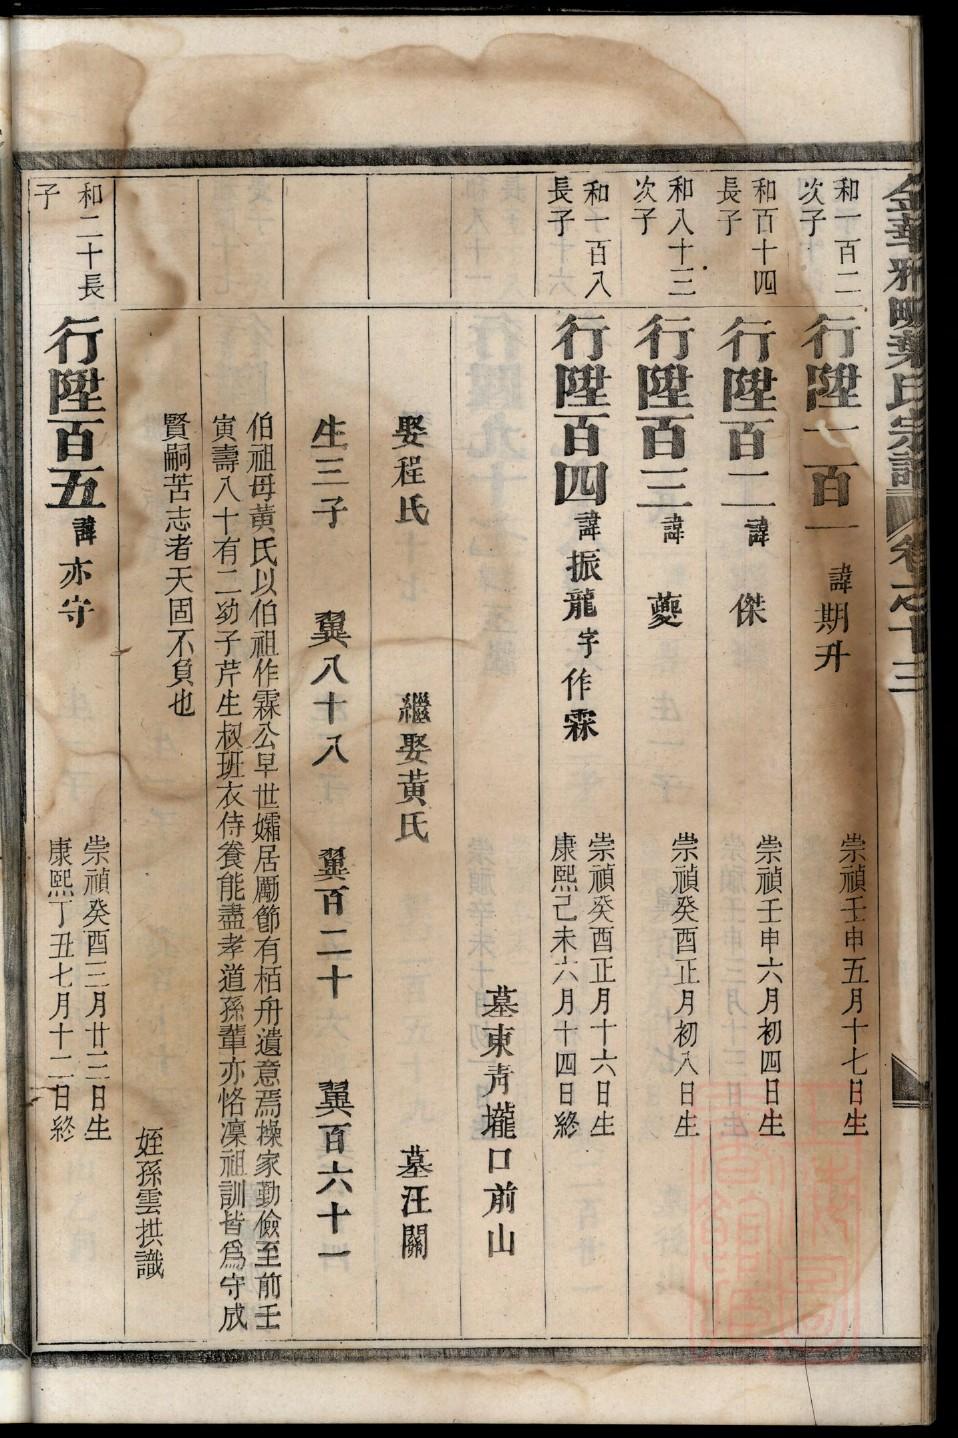 金華雅畈葉氏宗譜 卷之十三
和一百二
次子
行陞一百一 諱期升
崇禎壬申五月十七日生
和百十四
長子
行陞百二 諱傑
崇禎壬申六月初四日生
和八十三
次子
行陞百三 諱夔
崇禎癸酉正月初八日生
和一百八
長子
行陞百四 諱振龍 字作霖
崇禎癸酉正月十六日生
康熙己未六月十四日終
墓東青壠口前山
娶程氏 繼娶黃氏 墓汪關
生三子 翼八十八 翼百二十 翼百六十一
伯祖母黃氏以伯祖作霖公早世孀居勵節有栢舟遺意焉操家勤儉至前壬
寅壽八十有二幼子芹生叔班衣侍養能盡孝道孫輩亦恪凜祖訓皆爲守成
賢嗣苦志者天固不負也
姪孫雲拱識
和二十長
子
行陞百五 諱亦守
崇禎癸酉三月廿二日生
康熙丁丑七月十二日終